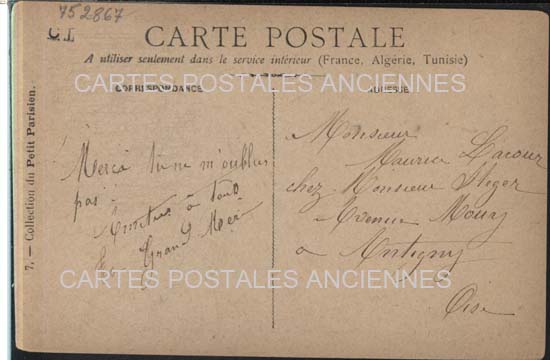 752867
C.L
CARTE POSTALE
A utiliser seulement dans le service intérieur (France, Algérie, Tunisie)
CARTES POSTALES ANCIENNES
CORRESPONDANCE
ADRESSE
Merci tu ne m'oublies
pas
Amitiés à tous
Grand Mère
Monsieur
Maurice Lacour
chez Monsieur Steger
Avenue
à Antigny
Oise
CARTES POSTALES ANCIENNES
7. — Collection du Petit Parisien.